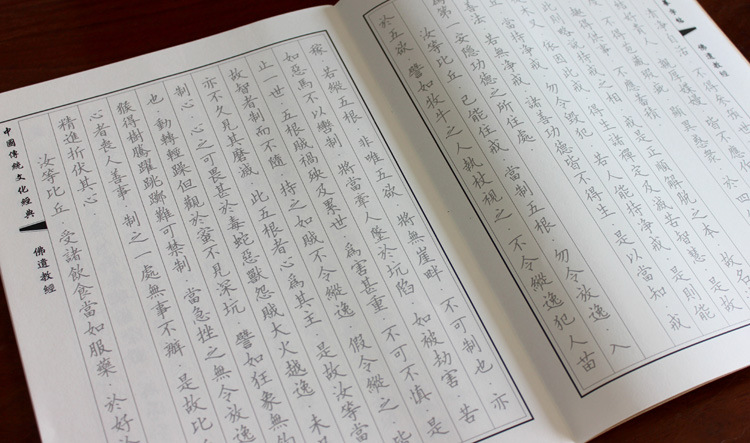 佛遺教經
清淨自活
結好貴人 親厚媟嫚 皆不
不得包藏瑕疵 顯異惑眾 於四
得供事 不應畜積
此則略說持戒之相 戒是正順解脫之本 故名
木叉 依因此戒 得生諸禪定及滅苦智慧 是故
當持淨戒 勿令毀犯 若人能持淨戒 是則能
善法 若無淨戒 諸善功德皆不得生 是以當知 戒
為第一安隱功德之所住處
汝等比丘 已能住戒 當制五根 勿令放逸 入
於五欲 譬如牧牛之人執杖視之 不令縱逸犯人苗
稼 若縱五根 非唯五欲 將無崖畔 不可制也 亦
如惡馬不以轡制 將當牽人墜於坑陷 如被劫害 苦
止一世 五根賊禍殃及累世 為害甚重 不可不慎 是
故智者制而不隨 持之如賊不令縱逸 假令縱之 皆
亦不久見其磨滅 此五根者心為其主 是故汝等當
制心 心之可畏甚於毒蛇惡獸怨賊大火越逸 未
也 動轉輕躁但觀於蜜不見深坑 譬如狂象無鉤
猴得樹騰躍跳躑難可禁制 當急挫之無令放逸
心者喪人善事 制之一處無事不辦 是故比
精進折伏其心
汝等比丘 受諸飲食當如服藥 於好
中國傳統文化經典
佛遺教經